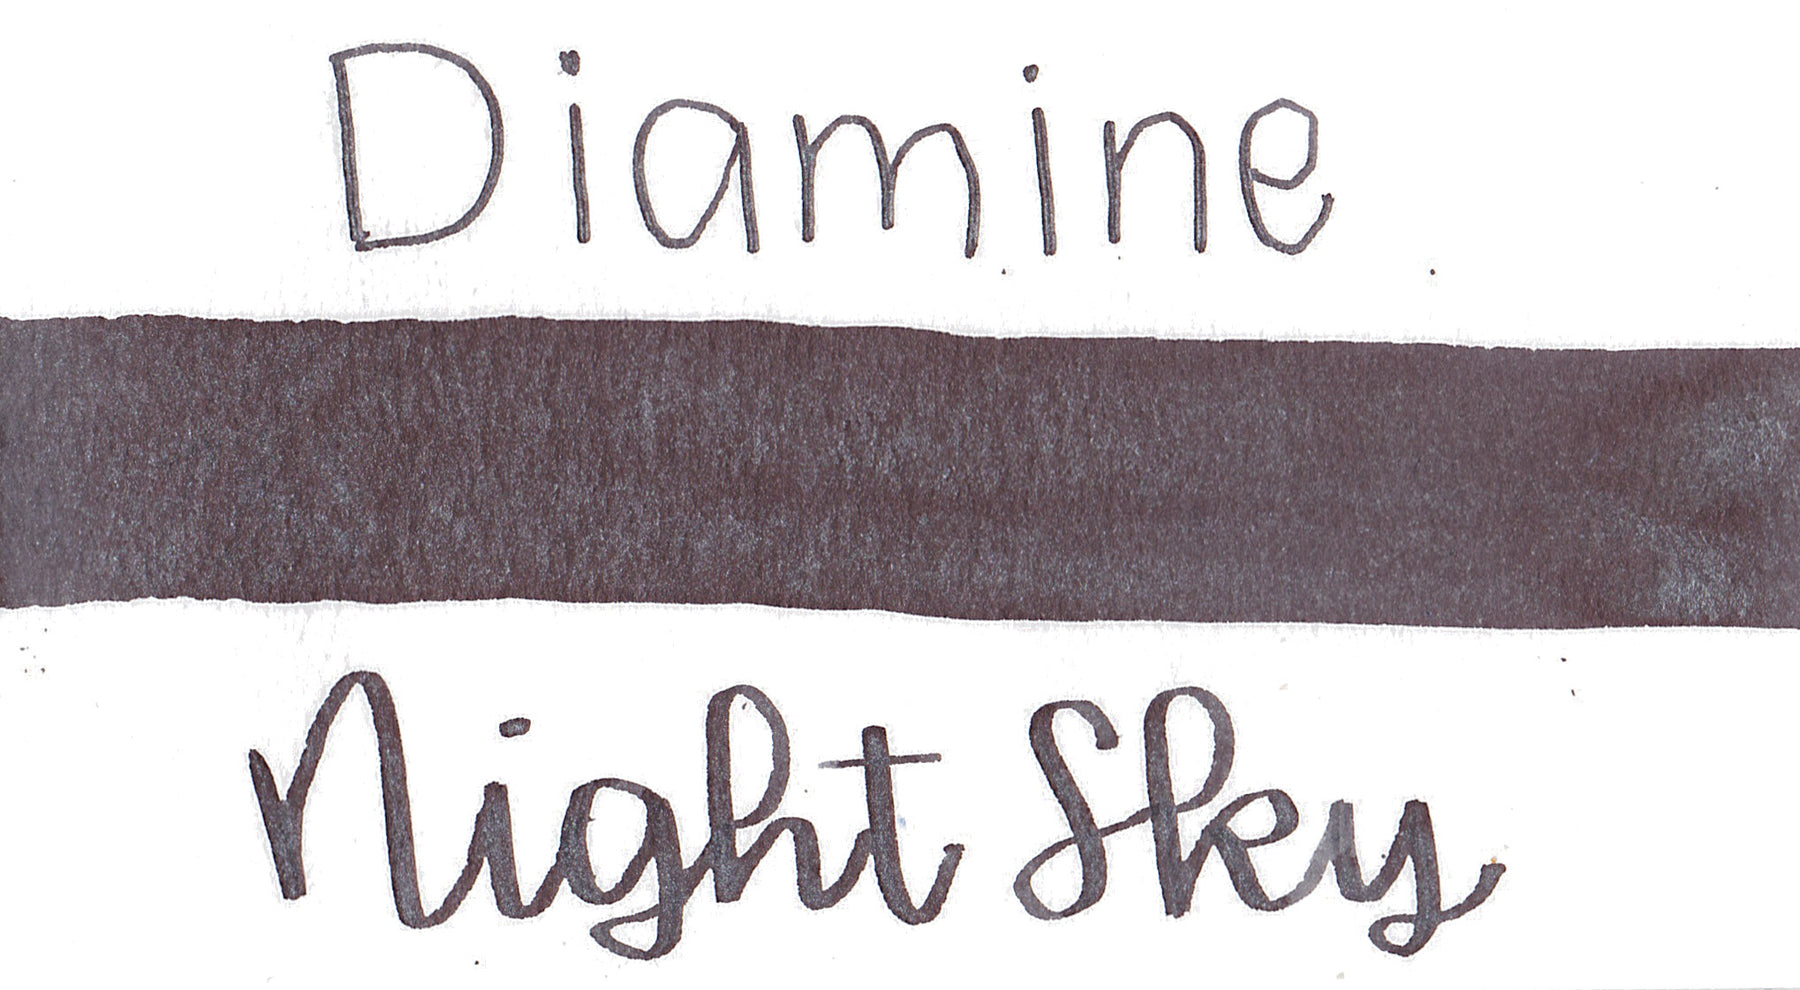 Diamine
Night Sky